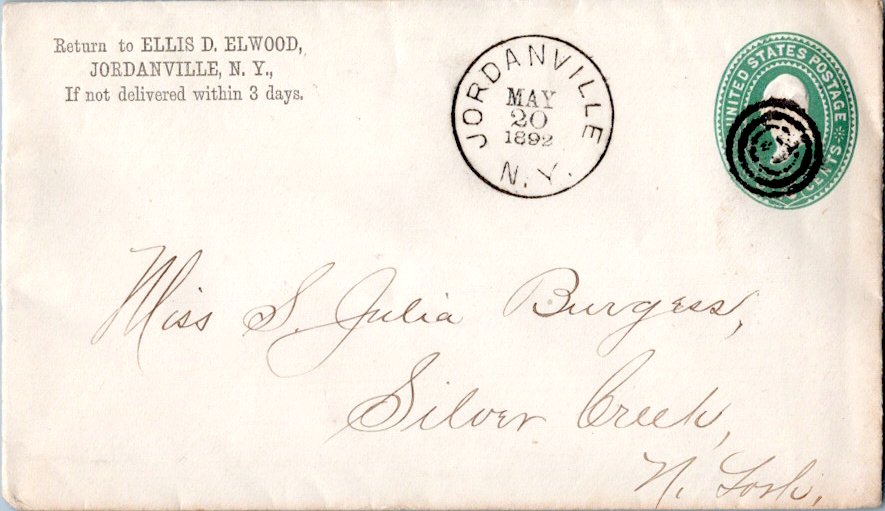 Return to ELLIS D. ELWOOD,
JORDANVILLE, N. Y.,
If not delivered within 3 days.
JORDANVILLE
MAY
20
1892
N. Y.
UNITED STATES POSTAGE
CENTS
Miss S. Julia Burgess,
Silver Creek,
N. York,